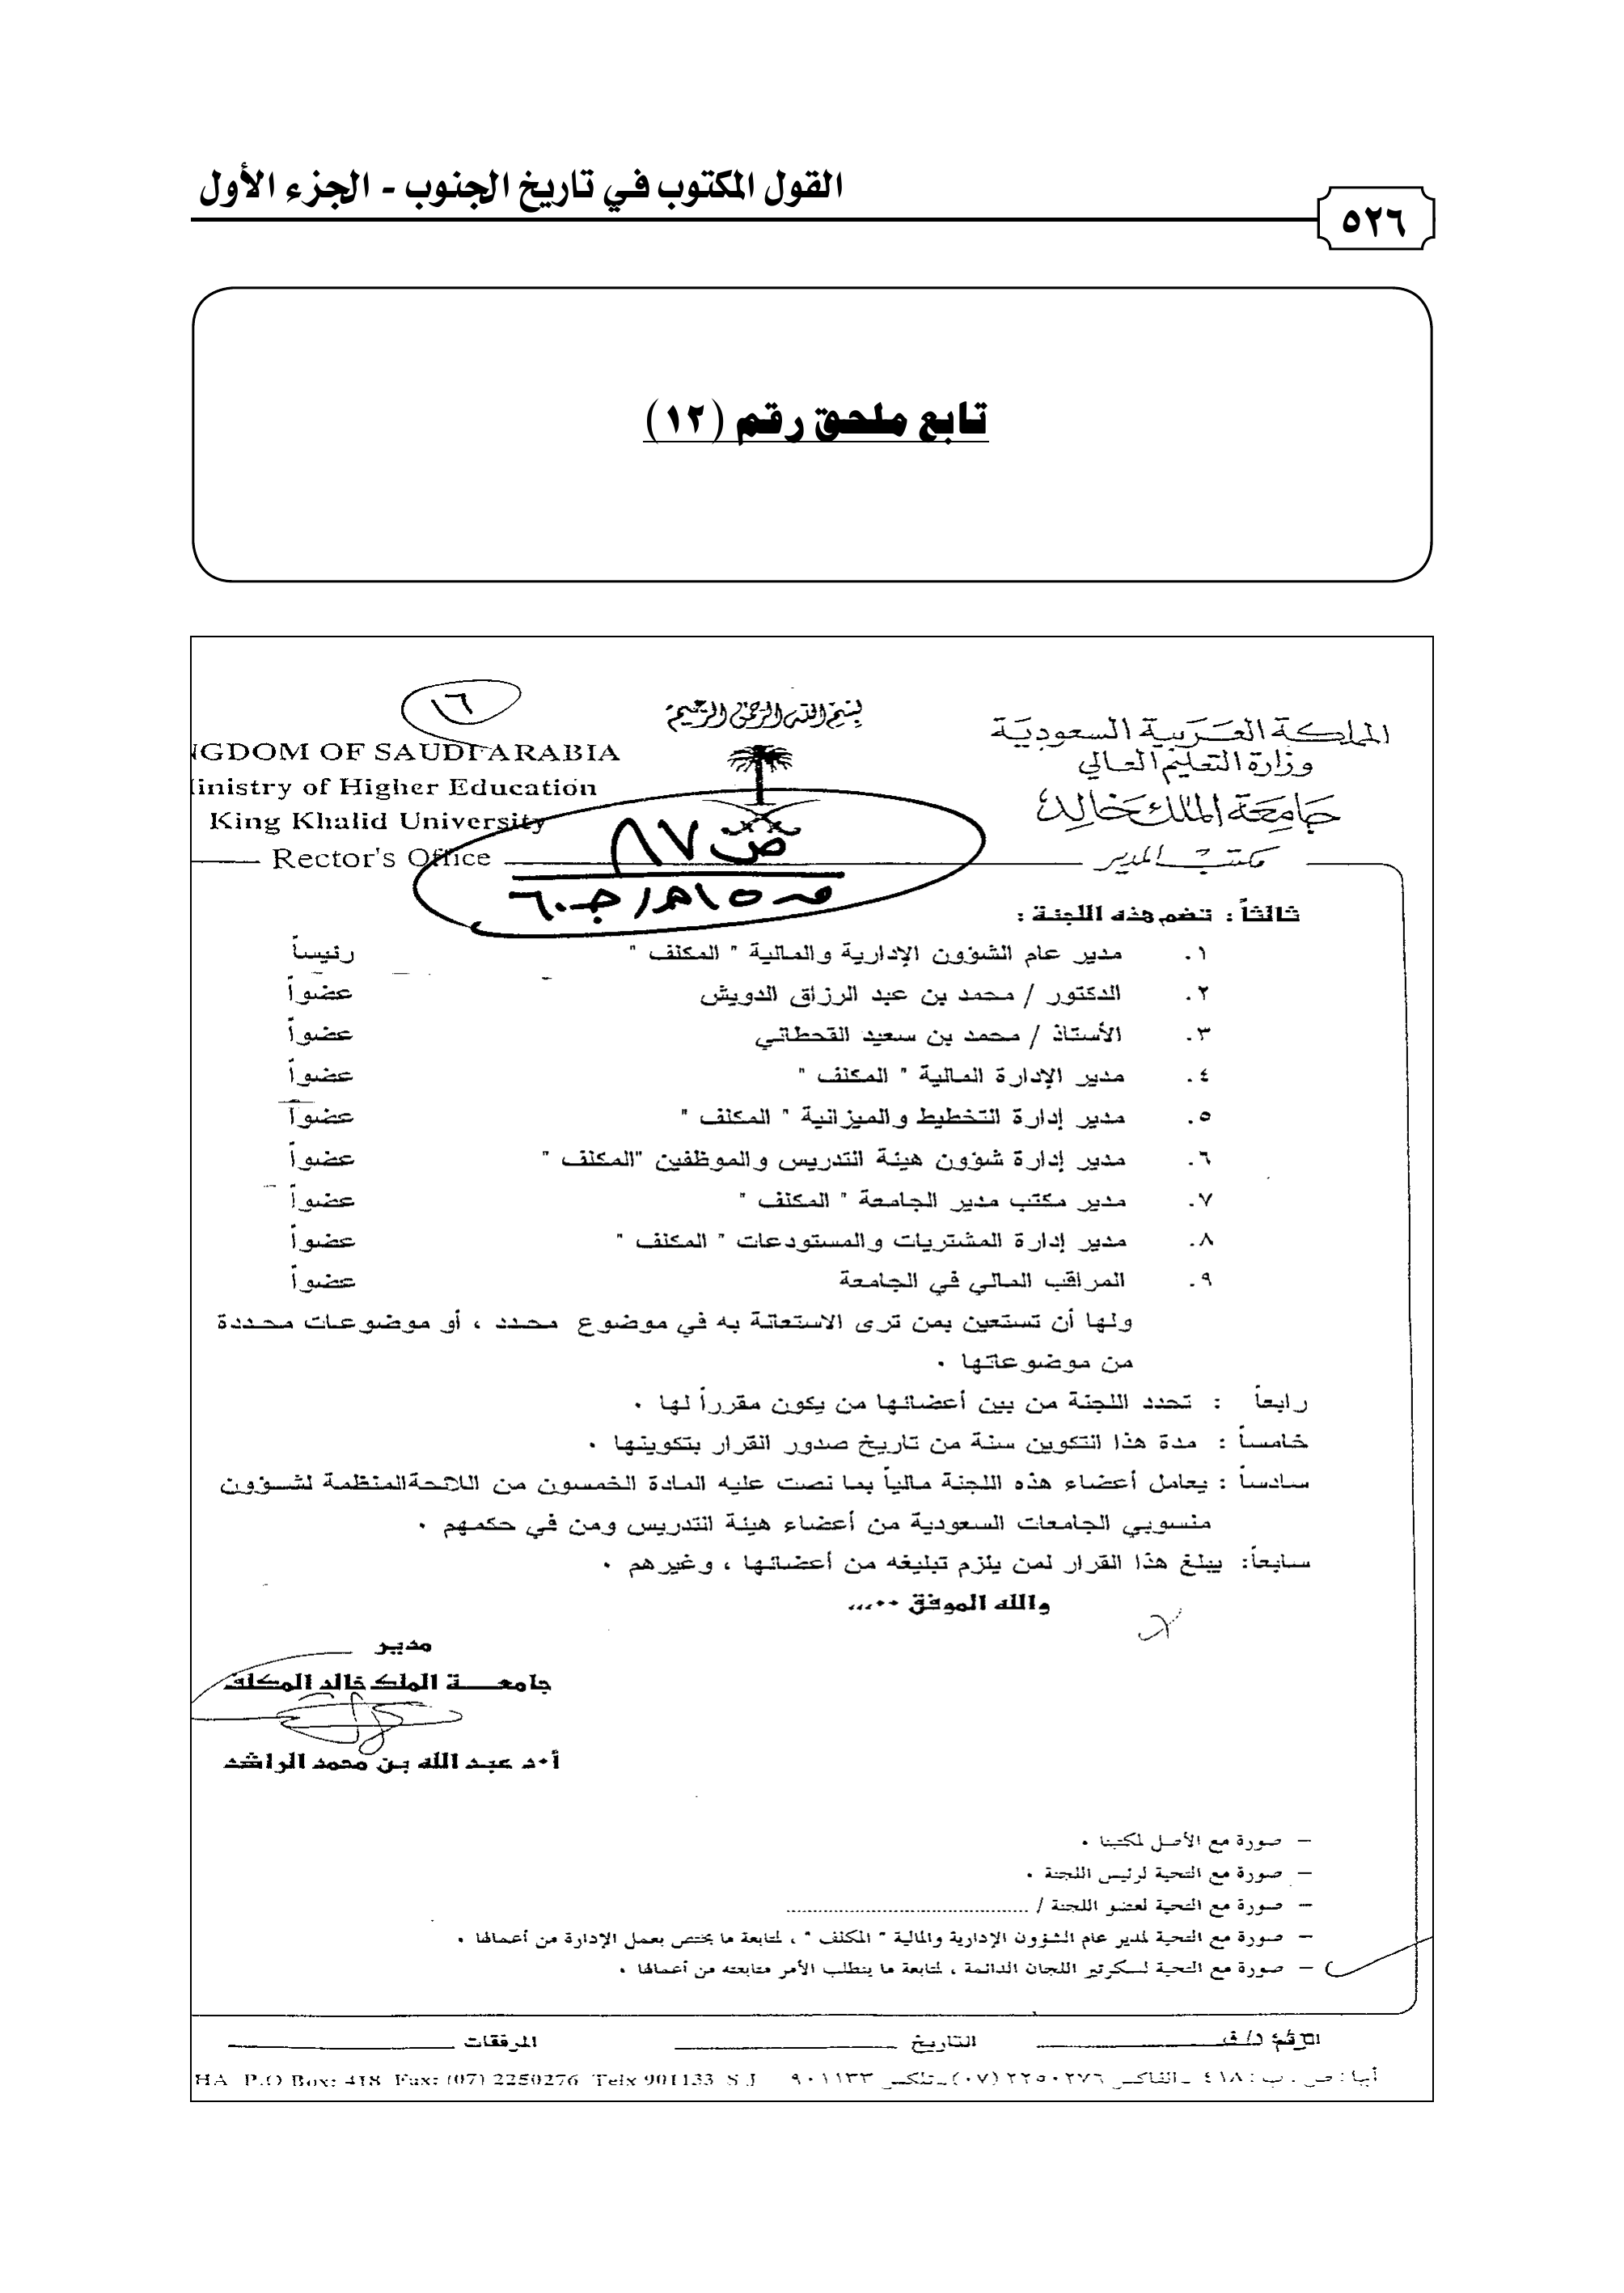 القول المكتوب في تاريخ الجنوب - الجزء الأول
٥٢٦
تابع ملحق رقم (١٢)
١٦
بسم الله الرحمن الرحيم
المملكة العربية السعودية
وزارة التعليم العالي
جامعة الملك خالد
مكتب المدير
NGDOM OF SAUDI ARABIA
inistry of Higher Education
King Khalid University
Rector's Office
ص ٨٧
ثالثاً : تضم هذه اللجنة :
١. مدير عام الشؤون الإدارية والمالية " المكلف " رئيساً
٢. الدكتور / محمد بن عبد الرزاق الدويش عضواً
٣. الأستاذ / محمد بن سعيد القحطاني عضواً
٤. مدير الإدارة المالية " المكلف " عضواً
٥. مدير إدارة التخطيط والميزانية " المكلف " عضواً
٦. مدير إدارة شؤون هيئة التدريس والموظفين "المكلف " عضواً
٧. مدير مكتب مدير الجامعة " المكلف " عضواً
٨. مدير إدارة المشتريات والمستودعات " المكلف " عضواً
٩. المراقب المالي في الجامعة عضواً
ولها أن تستعين بمن ترى الاستعانة به في موضوع محدد ، أو موضوعات محددة
من موضوعاتها .
رابعاً : تحدد اللجنة من بين أعضائها من يكون مقرراً لها .
خامساً : مدة هذا التكوين سنة من تاريخ صدور القرار بتكوينها .
سادساً : يعامل أعضاء هذه اللجنة مالياً بما نصت عليه المادة الخمسون من اللائحة المنظمة لشؤون
منسوبي الجامعات السعودية من أعضاء هيئة التدريس ومن في حكمهم .
سابعاً: يبلغ هذا القرار لمن يلزم تبليغه من أعضائها ، وغيرهم .
والله الموفق ..،،،
مدير
جامعة الملك خالد المكلف
أ.د عبد الله بن محمد الراشد
– صورة مع الأصل لمكتبنا .
– صورة مع التحية لرئيس اللجنة .
– صورة مع التحية لعضو اللجنة / ..........................................
– صورة مع التحية لمدير عام الشؤون الإدارية والمالية " المكلف " ، لمتابعة ما يختص بعمل الإدارة من أعمالها .
– صورة مع التحية لسكرتير اللجان الدائمة ، لمتابعة ما يتطلب الأمر متابعته من أعمالها .
الرقم التاريخ المرفقات
أبها : ص . ب : ٤١٨ ـ الفاكس ٢٢٥٠٢٧٦ (٠٧) ـ تلكس ٩٠١١٣٣
HA P.O Box: 418 Fax: (07) 2250276 Telx 901133 S J